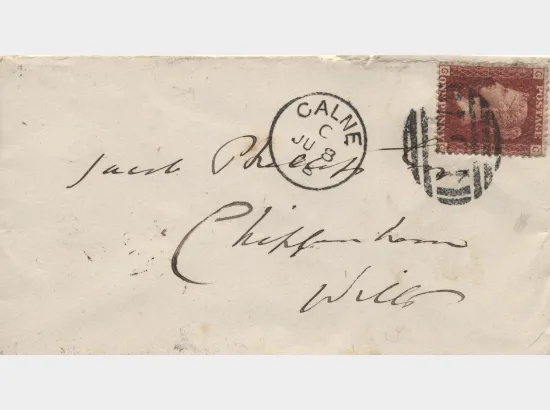 POSTAGE
ONE PENNY
G G
CALNE
C
JU 8
Jacob
Chippenham
Wilts